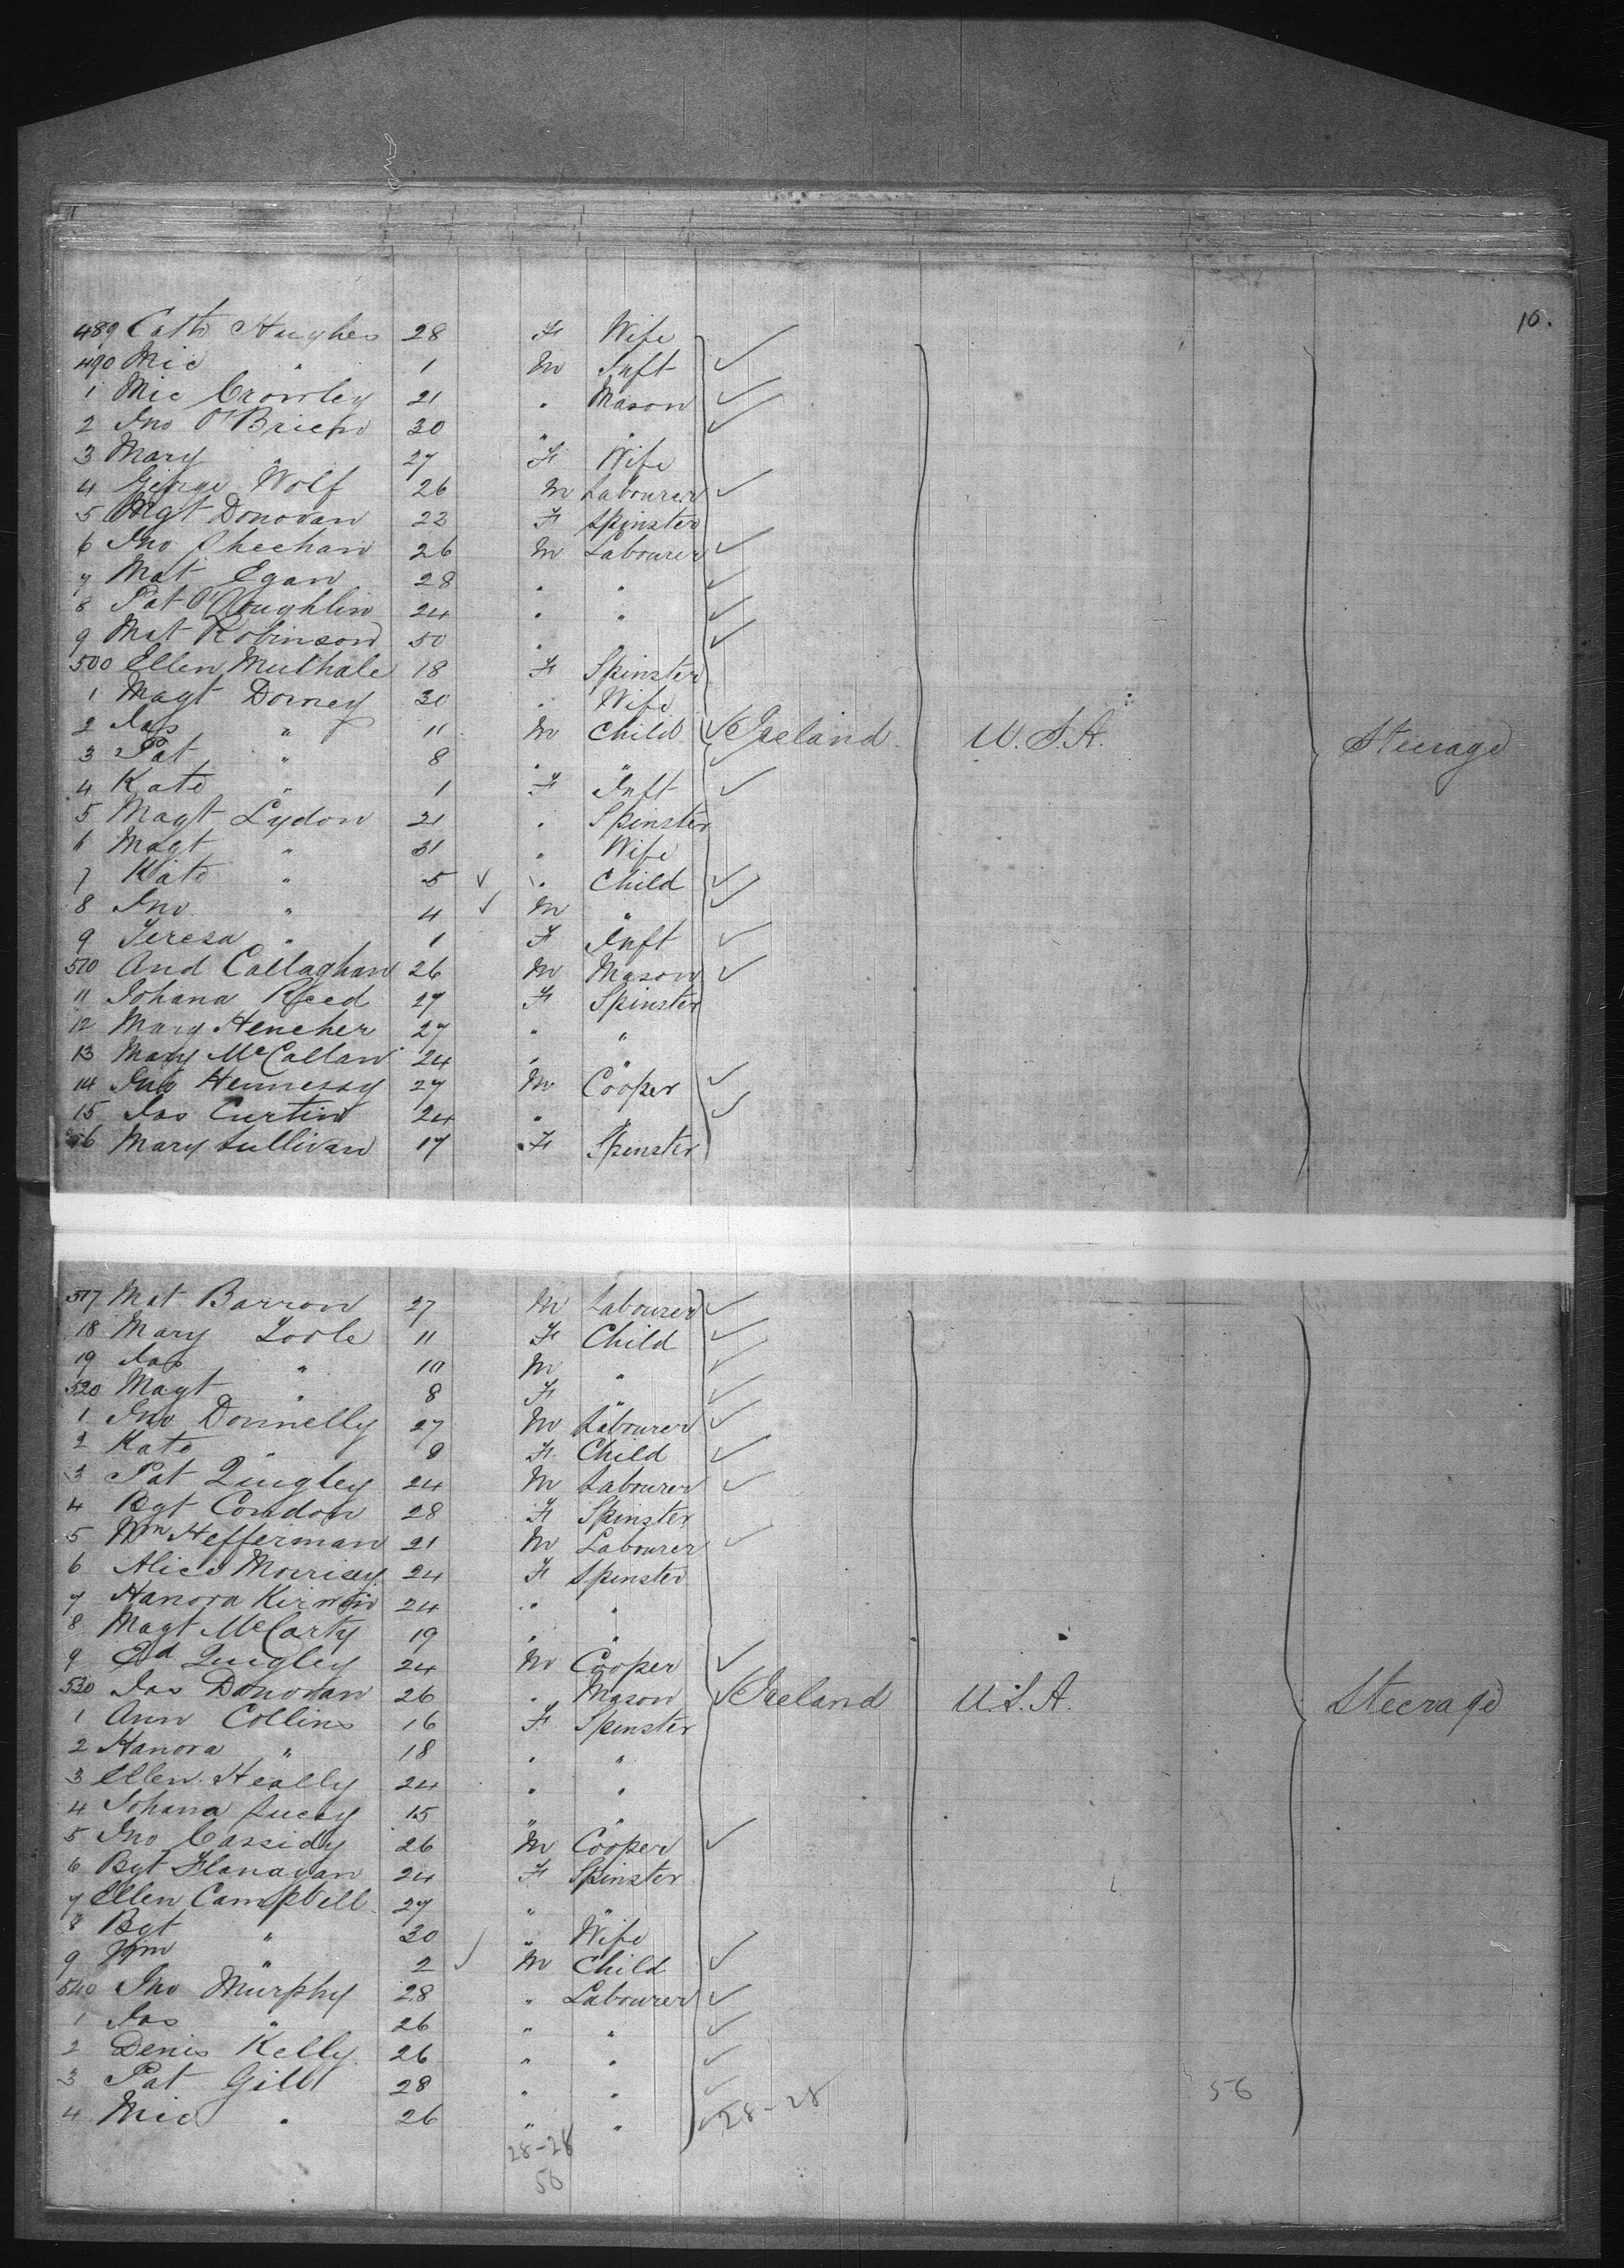 16.
489 Cath Hughes 28 F Wife
490 Mic " 1 M Inft ✓
1 Mic Crowley 21 " Mason ✓
2 Jno O'Brien 30 " " ✓
3 Mary " 27 F Wife
4 George Wolf 26 M Labourer ✓
5 Mgt Donovan 22 F Spinster
6 Jno Sheehan 26 M Labourer ✓
7 Mat Egan 28 " " ✓
8 Pat O'Loughlin 24 " " ✓
9 Mat Robinson 50 " " ✓
500 Ellen Mulhale 18 F Spinster
1 Magt Dorney 30 " Wife
2 Jas " 11 M Child ✓ Ireland U.S.A. Steerage
3 Pat " 8 " " ✓
4 Kate " 1 F Inft ✓
5 Magt Lydon 21 " Spinster
6 Magt " 31 " Wife
7 Kate " 5 ✓ " Child ✓
8 Jno " 4 ✓ M " ✓
9 Teresa " 1 F Inft ✓
510 And Callaghan 26 M Mason ✓
11 Johana Reed 27 F Spinster
12 Mary Hencher 27 " "
13 Mary McCallan 24 " "
14 Jno Hennessy 27 M Cooper ✓
15 Jas Curtin 24 " " ✓
16 Mary Sullivan 17 F Spinster
517 Mat Barron 27 M Labourer ✓
18 Mary Toole 11 F Child ✓
19 Jas " 10 M " ✓
520 Magt " 8 F " ✓
1 Jno Donnelly 27 M Labourer ✓
2 Kate " 9 F Child ✓
3 Pat Quigley 24 M Labourer ✓
4 Bgt Condon 28 F Spinster
5 Wm Hefferman 21 M Labourer ✓
6 Alice Morrisey 24 F Spinster
7 Hanora Kirwin 24 " "
8 Magt McCarty 19 " "
9 Ed Quigley 24 M Cooper ✓
530 Jas Donovan 26 " Mason ✓ Ireland U.S.A. Steerage
1 Ann Collins 16 F Spinster
2 Hanora " 18 " "
3 Ellen Heally 24 " "
4 Johana Lucey 15 " "
5 Jno Cassidy 26 M Cooper ✓
6 Bgt Flanagan 24 F Spinster
7 Ellen Campbell 27 " "
8 Bgt " 30 " Wife
9 Wm " 2 ✓ M Child ✓
540 Jno Murphy 28 " Labourer ✓
1 Jas " 26 " " ✓
2 Denis Kelly 26 " " ✓
3 Pat Gill 28 " " ✓ 56
4 Mic " 26 " " ✓ 28-28
28-28
56